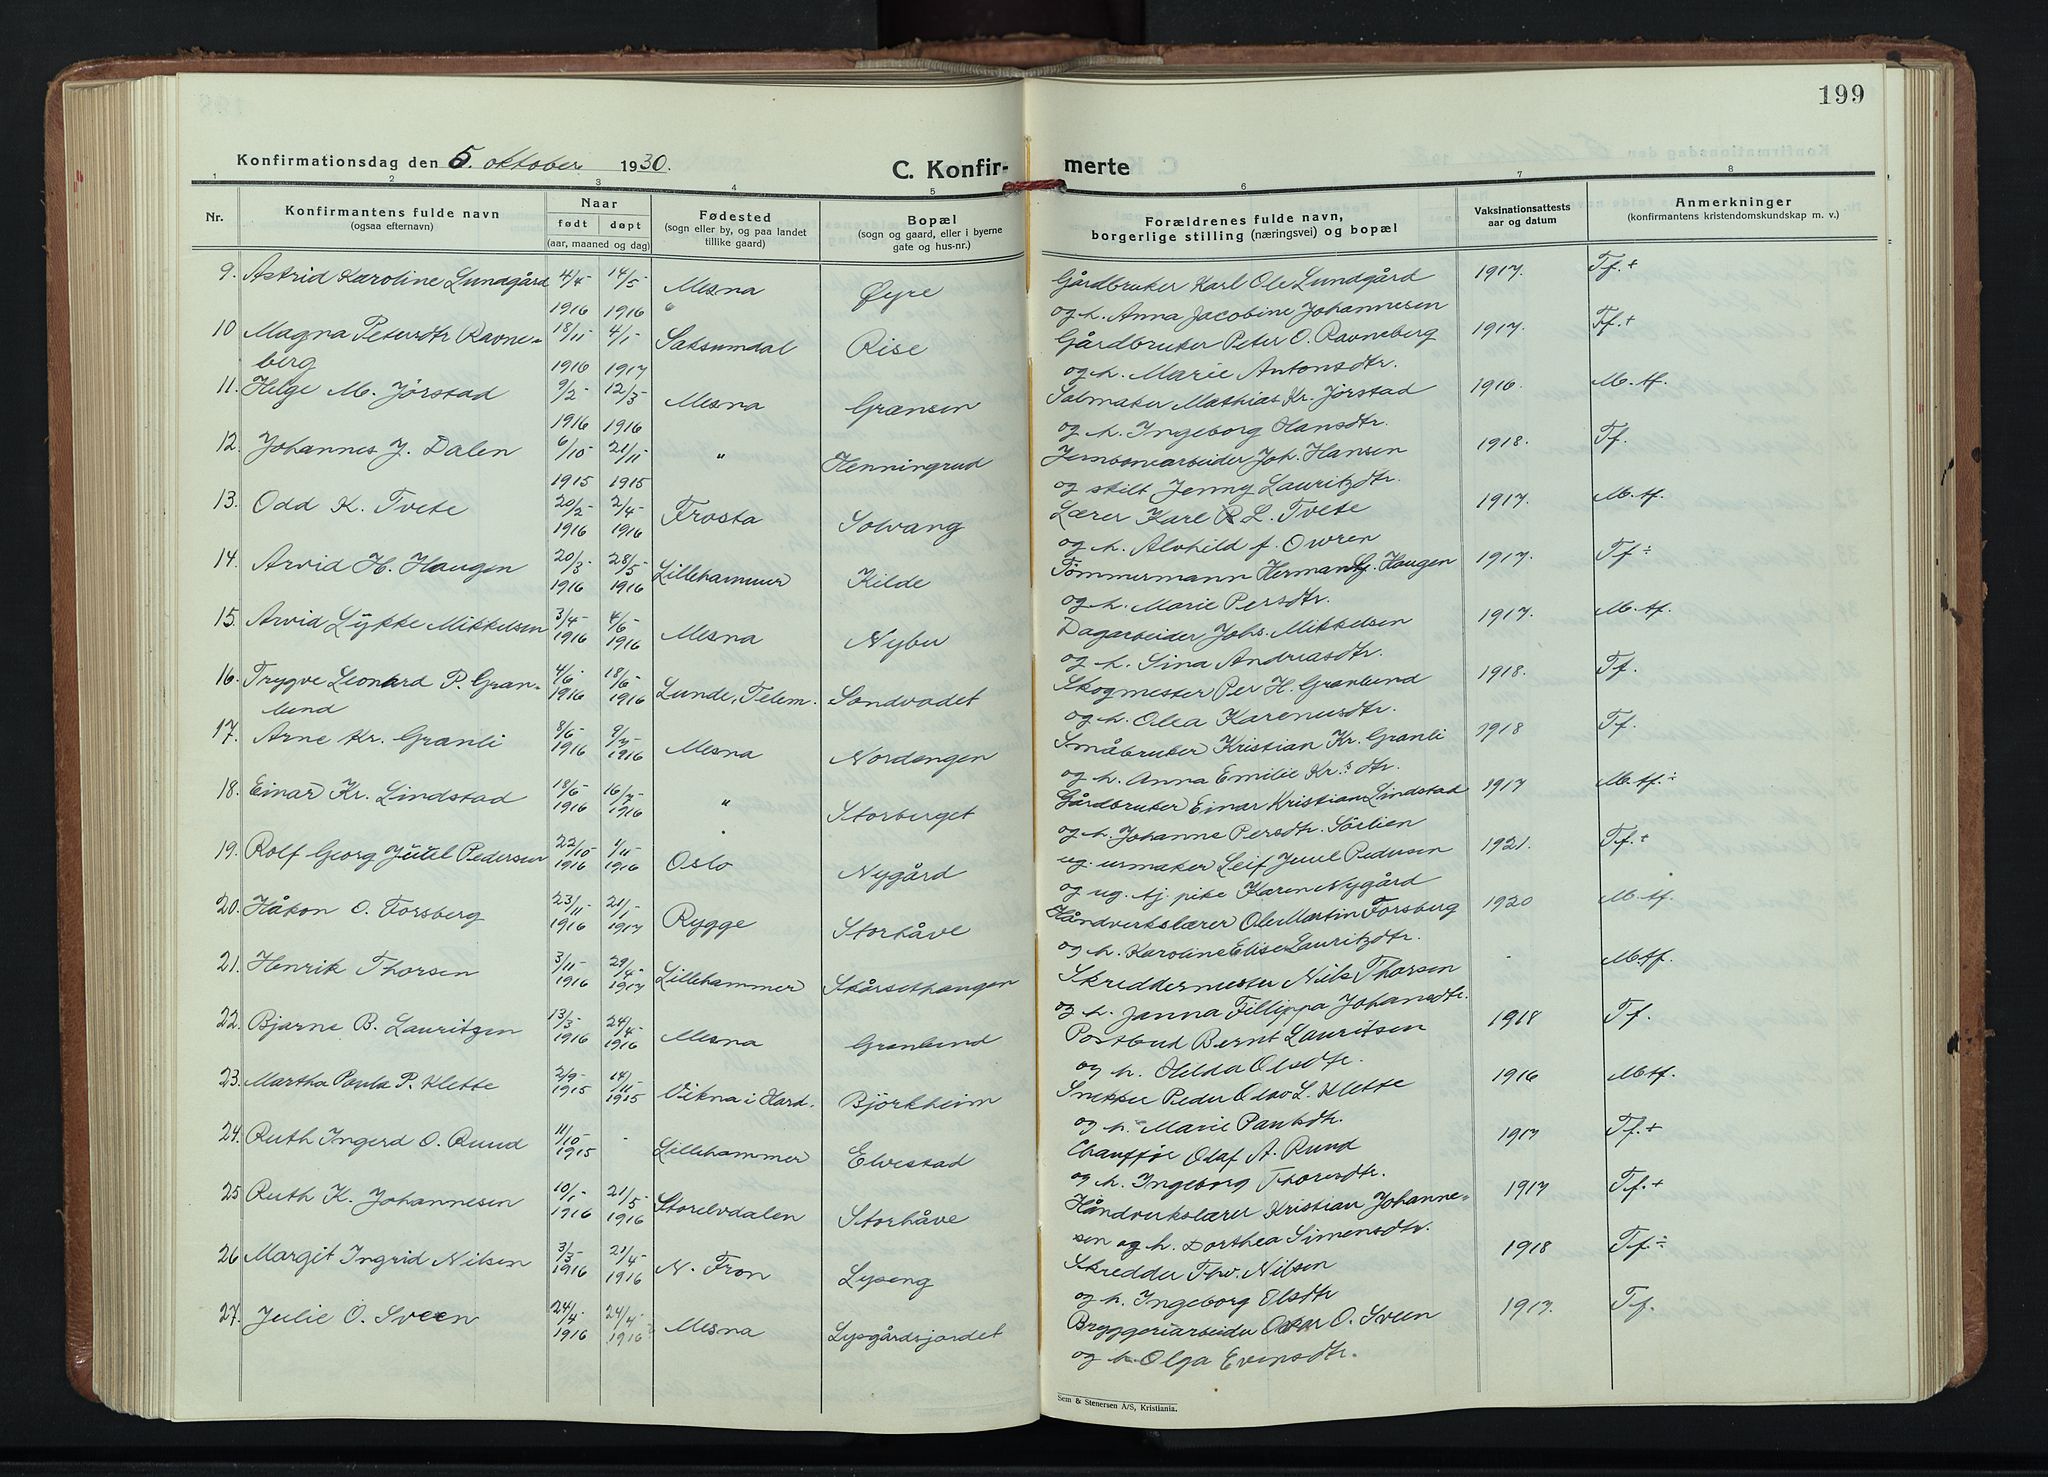 199
Konfirmationsdag den 5. oktober 1930.
C. Konfirmerte
1 2 3 4 5 6 7 8
Nr. Konfirmantens fulde navn (ogsaa efternavn) Naar født døpt (aar, maaned og dag) Fødested (sogn eller by, og paa landet tillike gaard) Bopæl (sogn og gaard, eller i byerne gate og hus-nr.) Forældrenes fulde navn, borgerlige stilling (næringsvei) og bopæl Vaksinationsattests aar og datum Anmerkninger (konfirmantens kristendomskundskap m. v.)
9. Astrid Karoline Lundgård 4/4- 1916 14/5 1916 Mesna Øyre Gårdbruker Karl Ole Lundgård 1917. Tf.+
og h. Anna Jacobine Johannesen
10 Magna Petersdtr Ravne- 18/11- 1916 4/1- 1917 Saksumdal Rise Gårdbruker Peter O. Ravneberg 1917. Tf.+
berg og h. Marie Antonsdtr.
11. Helge M. Jørstad 9/2- 1916 12/3- 1916 Mesna Grænsen Salmaker Mathias Kr. Jørstad 1916. M.tf.
og h. Ingeborg Hansdtr.
12. Johannes J. Dalen 6/10- 1915 21/11- 1915 " Henningrud Jernbanearbeider Joh. Hansen 1918. Tf.
og skilt Jenny Lauritzdtr.
13. Odd K. Tvete 20/2- 1916 2/4- 1916 Frosta Solvang Lærer Karl R L. Tvete 1917. M.tf.
og h. Alvhild f. Owren
14. Arvid H. Haugen 20/3- 1916 28/5- 1916 Lillehammer Kilde Tømmermann Herman G. Haugen 1917. Tf÷
og h. Marie Persdtr.
15. Arvid Lykke Mikkelsen 3/4- 1916 4/6- 1916 Mesna Nybu Dagarbeider Johs. Mikkelsen 1917. M.tf.
og h. Sina Andreasdtr.
16. Trygve Leonhard P. Gran- 4/6- 1916 18/6- 1916 Lunde, Telem. Sandvadet Skogmester Per H. Granlund 1918. Tf.
lund og h. Olea Karenusdtr.
17. Arne Kr. Granli 8/6- 1916 9/7- 1916 Mesna Nordengen Småbruker Kristian Kr. Granli 1918 Tf.
og h. Anna Emilie Kr.s dtr.
18. Einar Kr. Lindstad 18/6- 1916 16/7- 1916 " Storberget Gårdbruker Einar Kristian Lindstad 1917 M.tf.÷
og h. Johanne Persdtr. Sörlien
19. Rolf Georg Juul Pedersen 22/10- 1916 1/11- 1916 Oslo Nygård ug. urmaker Leif Juul Pedersen 1921. Tf.+
og ug. tj. pike Karen Nygård
20. Håkon O. Forsberg 23/11- 1916 21/1- 1917 Rygge Storhåve Håndverkslærer Ole Martin Forsberg 1920 M.tf.
og h. Karoline Elise Lauritzdtr.
21. Henrik Thorsen 3/11- 1916 29/4- 1917 Lillehammer Skårsethaugen Skreddermester Nils Thorsen - M.tf.
og h. Janna Fillippa Johansdtr.
22. Bjarne B. Lauritzen 13/3- 1916 24/4- 1916 Mesna Granlund Postbud Bernt Lauritsen 1918 Tf.
og h. Hilda Olsdtr.
23. Martha Paula P. Klette 2/9- 1915 14/11- 1915 Vikna i Hard. Björkheim Snekker Peder Olav L. Klette 1916 Mtf.
og h. Marie Paulsdtr.
24. Ruth Ingerd O. Ruud 11/10- 1915 - Lillehammer Elvestad Chauffør Olaf A. Ruud 1917 Tf.+
og h. Ingeborg Thoresdtr.
25 Ruth K. Johannesen 10/1- 1916 21/5- 1916 Storelvdalen Storhåve Håndverkslærer Kristian Johanne- 1917 Tf.+
sen og h. Dorthea Simensdtr.
26 Margit Ingrid Nilsen 3/3- 1916 21/4- 1916 N. Fron Lyseng Skredder Thv. Nilsen 1918 Tf.÷
og h. Ingeborg Elsdtr
27. Julie O. Sveen 24/4- 1916 24/4- 1916 Mesna Lysgårdsjordet Bryggeriarbeider Oskar O. Sveen 1917. Tf.
og h. Olga Evensdtr.
Sem & Stenersen A/S, Kristiania.